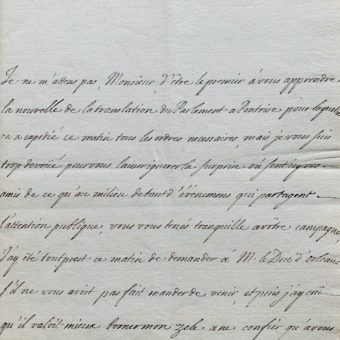 Je ne m'attens pas, Monsieur, d'être le premier à vous apprendre
la nouvelle de la translation du Parlement a Pontoise pour laquelle
on a expedié ce matin tous les ordres necessaires, mais je vous suis
trop devoüé pour vous laisser ignorer la surprise où sont icy vos
amis de ce qu'au milieu de tant d'évenemens qui partagent
l'attention publique, vous vous tenés tranquille à vôtre campagne,
J'ay été tout prest ce matin de demander à M. le Duc d'orleans
s'il ne vous avoit pas fait mander de venir, et puis j'ay crû
qu'il valoit mieux borner mon zele a ne confier qu'à vous